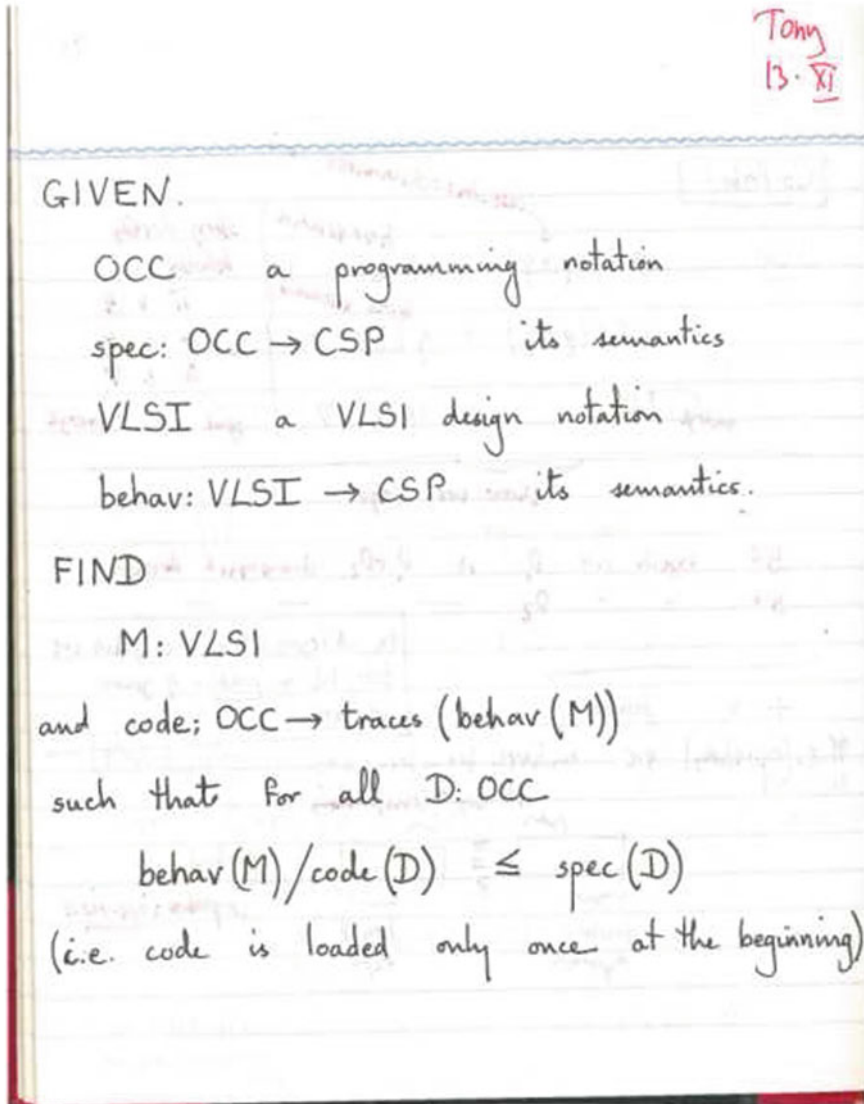 Tony
13. XI
GIVEN.
OCC. a programming notation
spec: OCC → CSP its semantics
VLSI a VLSI design notation
behav: VLSI → CSP its semantics.
FIND
M: VLSI
and code; OCC → traces (behav (M))
such that for all D: OCC
behav (M) / code (D) ≤ spec (D)
(i.e. code is loaded only once at the beginning)